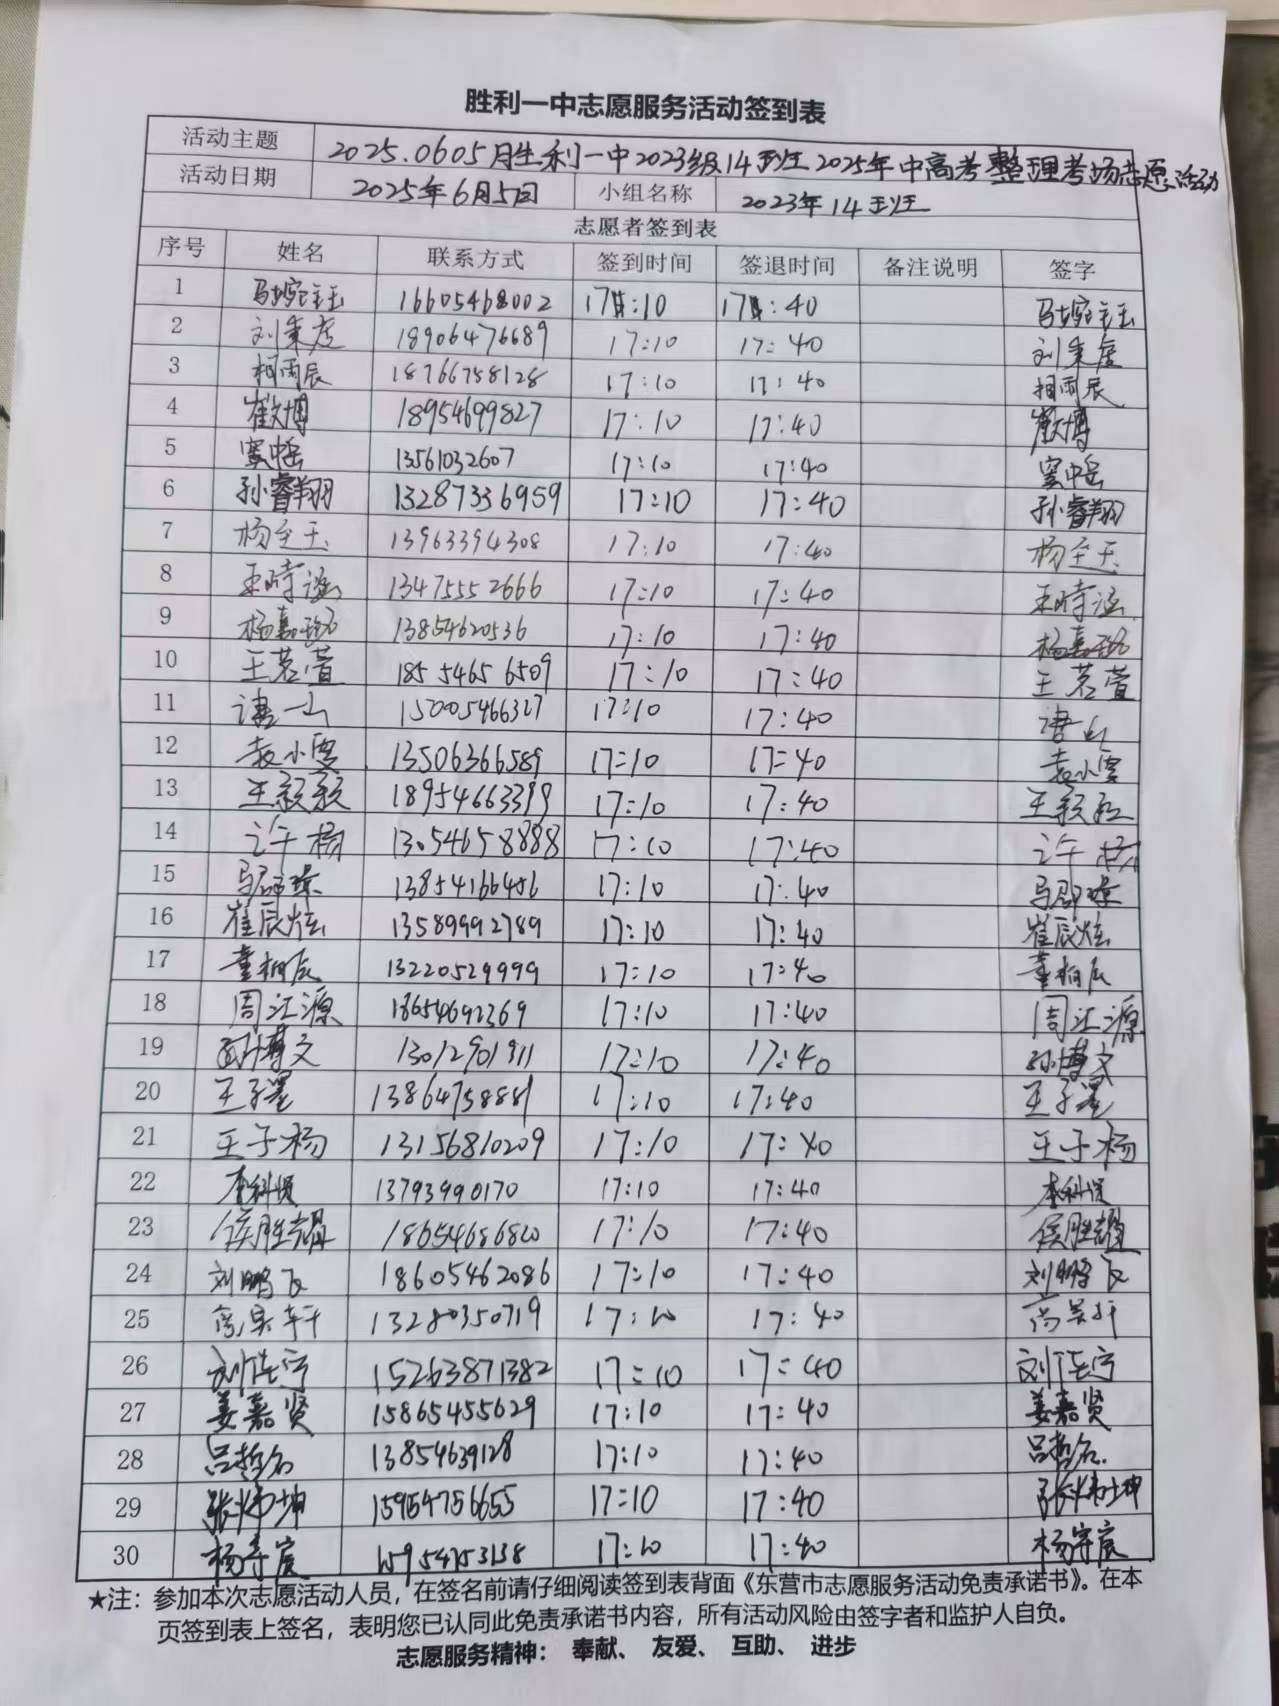 胜利一中志愿服务活动签到表
活动主题 2025.0605胜利一中2023级14班2025年中高考整理考场志愿活动
活动日期 2025年6月5日 小组名称 2023年14班
志愿者签到表
序号 姓名 联系方式 签到时间 签退时间 备注说明 签字
1 16605468002 17:10 17:40
2 18906476689 17:10 17:40
3 柯雨辰 18766758128 17:10 17:40 柯雨辰
4 崔文博 18954699827 17:10 17:40 崔文博
5 窦中岳 13561032607 17:10 17:40 窦中岳
6 孙睿翔 13287336959 17:10 17:40 孙睿翔
7 杨至玉 13963394308 17:10 17:40 杨至玉
8 13475552666 17:10 17:40
9 杨嘉 13854620536 17:10 17:40 杨嘉
10 王茗萱 18554656509 17:10 17:40 王茗萱
11 15005466327 17:10 17:40
12 袁小雯 13506366589 17:10 17:40 袁小雯
13 18954663399 17:10 17:40
14 许杨 13054658888 17:10 17:40 许杨
15 13854166456 17:10 17:40
16 崔辰炫 13589992789 17:10 17:40 崔辰炫
17 董柏辰 13220529999 17:10 17:40 董柏辰
18 周江源 18654692369 17:10 17:40 周江源
19 孙博文 13012901911 17:10 17:40 孙博文
20 王子墨 13864758881 17:10 17:40 王子墨
21 王子杨 13156810209 17:10 17:40 王子杨
22 13793990170 17:10 17:40
23 侯胜耀 18654686820 17:10 17:40 侯胜耀
24 刘鹏飞 18605462086 17:10 17:40 刘鹏飞
25 高昊轩 13280350719 17:10 17:40 高昊轩
26 刘佳宁 15263871382 17:10 17:40 刘佳宁
27 姜嘉贤 15865455629 17:10 17:40 姜嘉贤
28 吕哲名 13854639128 17:10 17:40 吕哲名
29 张炜坤 15954756655 17:10 17:40 张炜坤
30 杨守宸 15954753138 17:10 17:40 杨守宸
★注：参加本次志愿活动人员，在签名前请仔细阅读签到表背面《东营市志愿服务活动免责承诺书》。在本
页签到表上签名，表明您已认同此免责承诺书内容，所有活动风险由签字者和监护人自负。
志愿服务精神： 奉献、 友爱、 互助、 进步